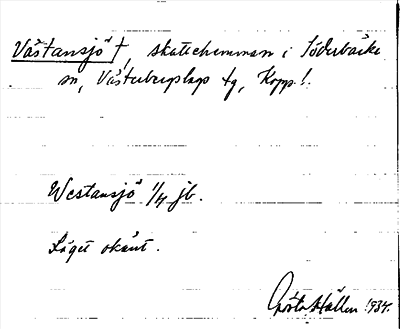 Västansjö †, skattehemman i Söderbärke
sn, Västerbergslags tg, Kopp. l.
Westansjö 1/4 jb.
Läget okänt.
Gösta Hallen 1934.